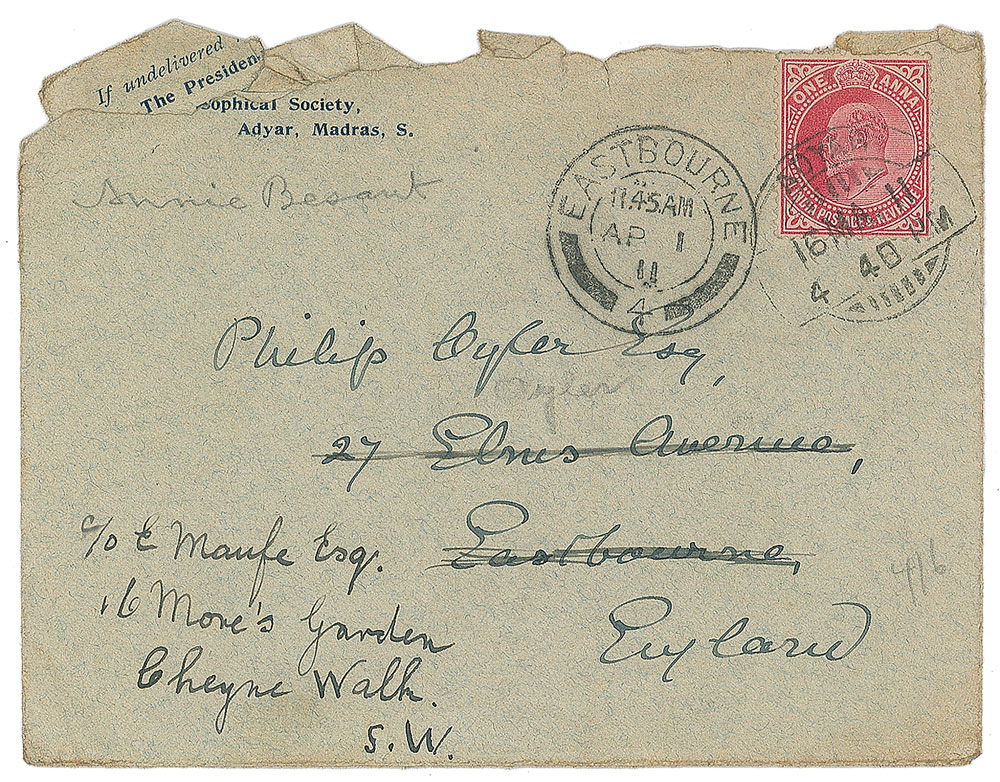 If undelivered
The Presiden
sophical Society,
Adyar, Madras, S.
Annie Besant
EASTBOURNE
11.45 AM
AP 1
11
4
ONE ANNA
INDIA POSTAGE & REVENUE
ADYAR
16 MAR 11
4 40 PM
Philip Oyler Esq,
Oyler
27 Elms Avenue,
Eastbourne,
England
c/o E Maufe Esq.
16 More's Garden
Cheyne Walk.
S.W.